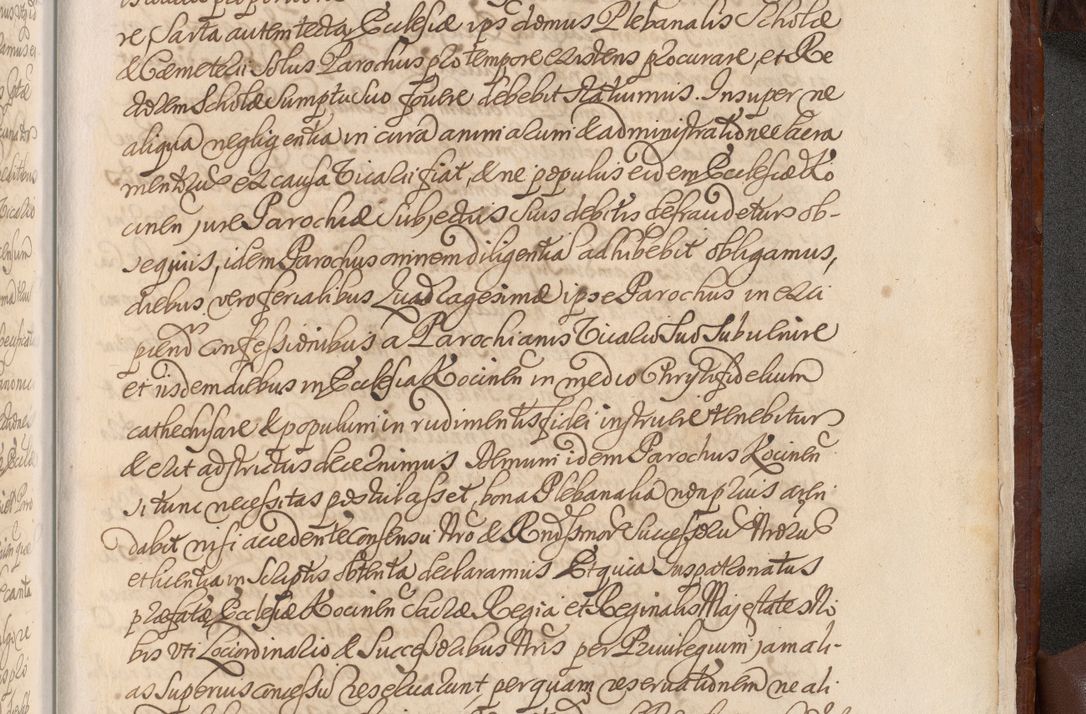 re, Sarta autem tecta, Ecclesiæ ipsi domus Plebanalis Scholæ
& Cæmeterii Solus Parochus pro tempore existens procurare, et Re
ctorem Scholæ Sumptu Suo fovere debebit statuimus. Insuper ne
aliqua negligentia in cura animarum & administratione Sacra
mentorũ ex causa Vicarii fiat, & ne populus eidem Ecclesiæ Ko
cinen jure Parochiæ Subjectus Suis debitis defraudetur ob-
sequiis, idem Parochus omnem diligentia adhibebit obligamus,
diebus vero ferialibus Quadragesimæ ipse Parochus in exci
piend confessionibus a Parochianis Vicario Suo Subvenire
et iisdem diebus in Ecclesia Kocinen in medio Chrysti fidelium
cathechisare & populum in rudimentis fidei instruere tenebitur
& erit adstrictus decernimus Demum idem Parochus Kocinen
si tunc necessitas postulasset, bona Plebanalia non prius aren
dabit nisi accedente consensu Nro & Rndssmor Successorũ Nrorũ
et licentia in Scriptis obtenta declaramus Et quia Jus patronatus
præfatæ Ecclesiæ Kocinen Sacræ Regia et Reginalis Majestates No
bis uti Loci ordinario & Successoribus Nris per Privilegium jam ali-
as Superius concessũ reservarunt per quam reservationem ne ali